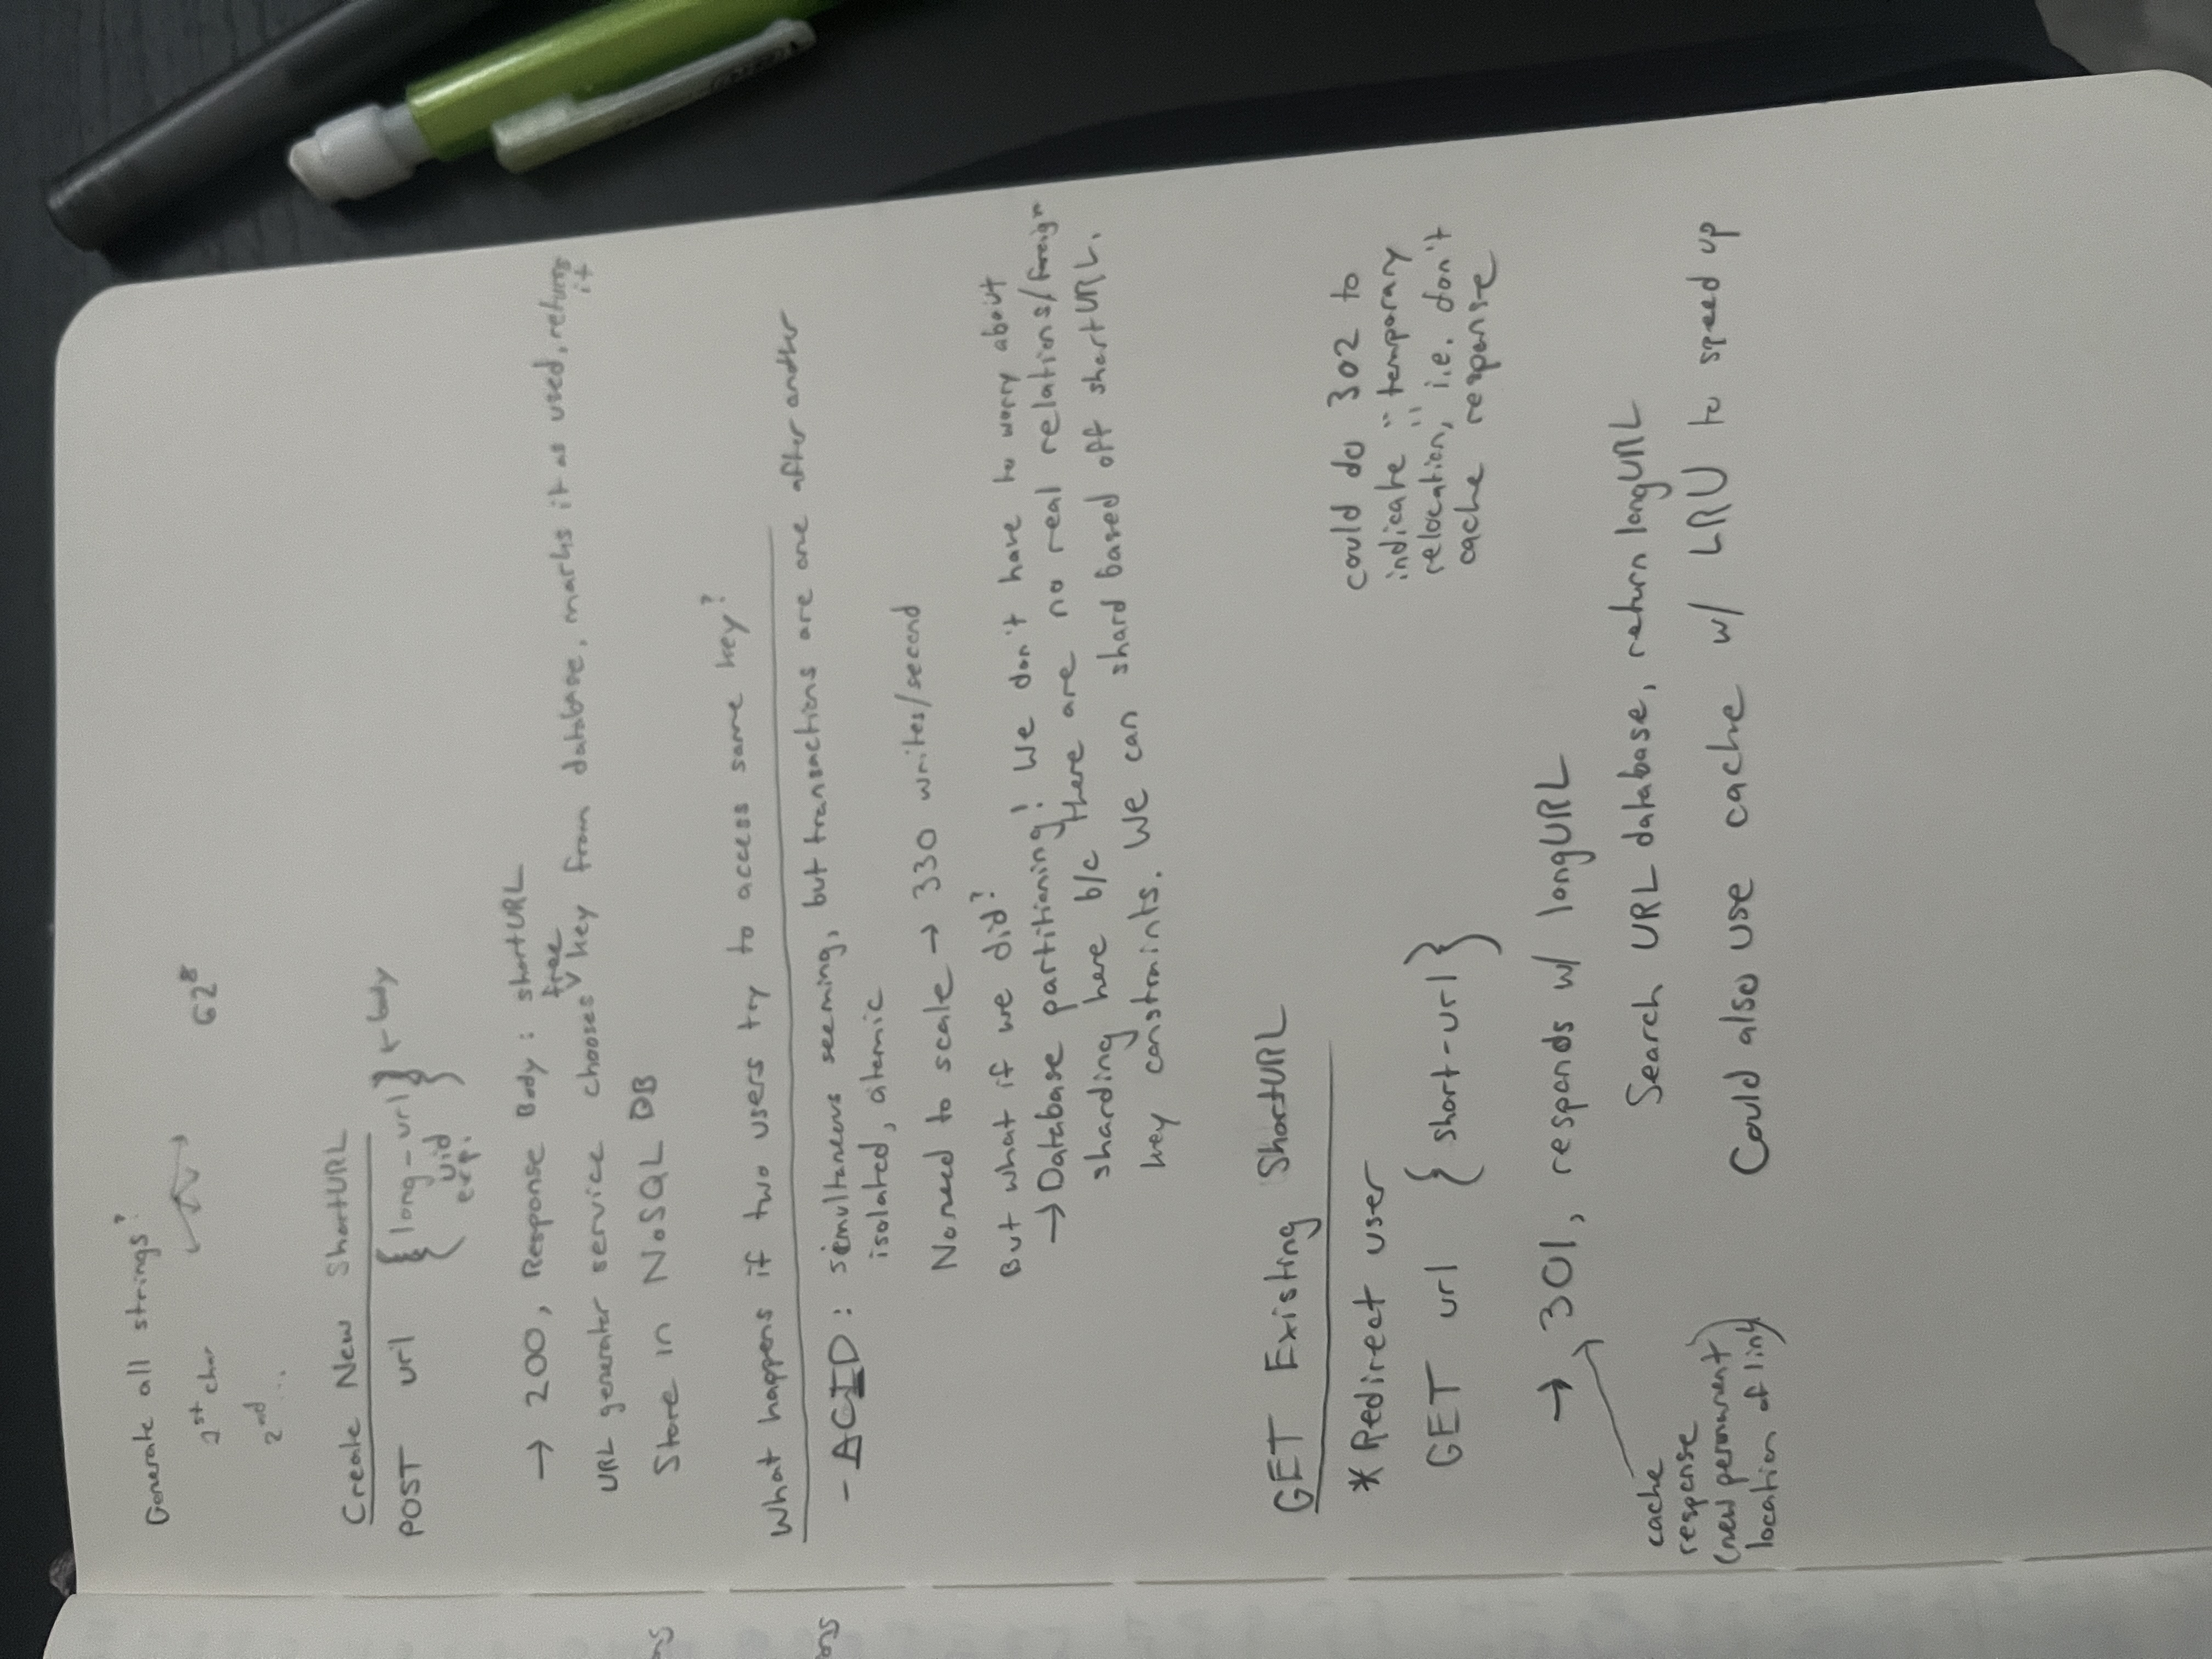 Generate all strings?
1st char 62⁸
2nd ...
Create New ShortURL
POST url { long-url } ← body
uid
exp.
→ 200, Response Body: shortURL
free
URL generator service chooses ˅ key from database, marks it as used, returns
it
Store in NoSQL DB
What happens if two users try to access same key?
- ACID: simultaneous seeming, but transactions are one after another
isolated, atomic
No need to scale → 330 writes/second
But what if we did?
→ Database partitioning! We don't have to worry about
sharding here b/c there are no real relations/foreign
key constraints. We can shard based off shortURL.
GET Existing ShortURL
* Redirect user
GET url { short-url }
could do 302 to
indicate "temporary
relocation," i.e. don't
cache response
→ 301, responds w/ longURL
cache
response
(new permanent
location of link)
Search URL database, return longURL
Could also use cache w/ LRU to speed up
ns
ons